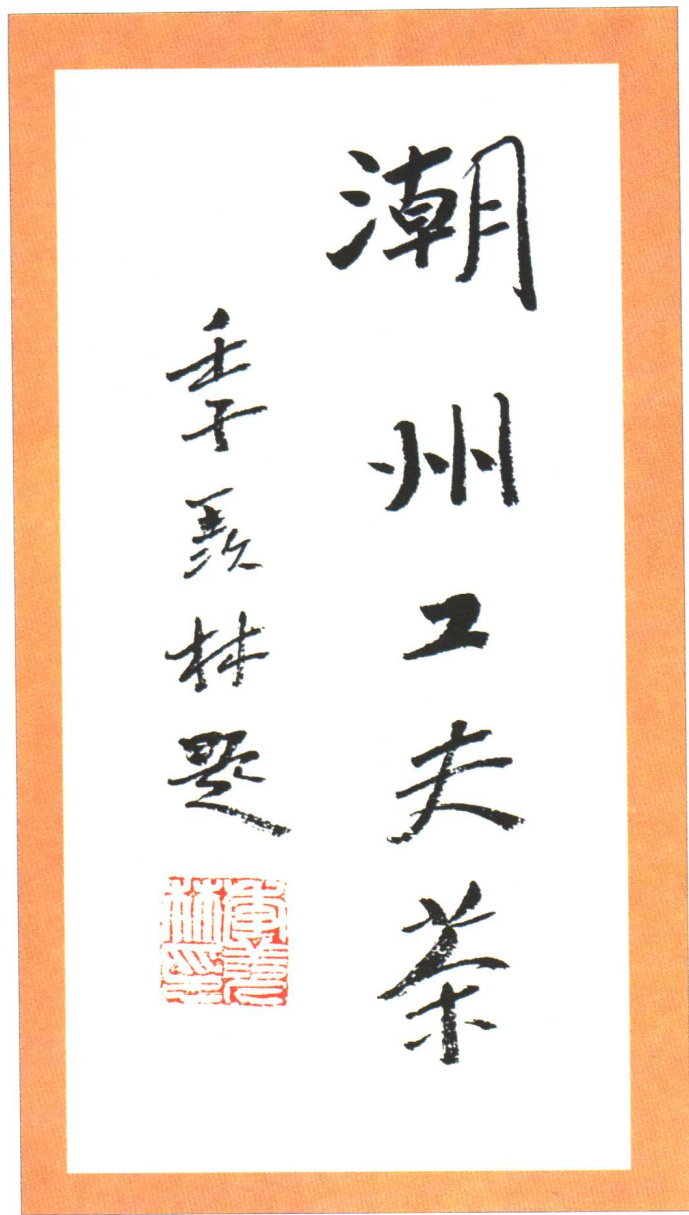 潮州工夫茶
季羡林题
季羡林印